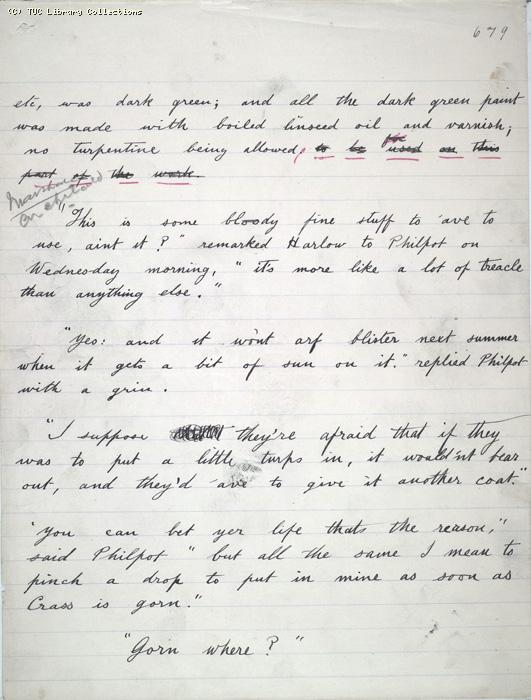 (C) TUC Library Collections
679
etc, was dark green; and all the dark green paint
was made with boiled linseed oil and varnish;
no turpentine being allowed, to be used on this
part of the work.
"This is some bloody fine stuff to 'ave to
use, aint it?" remarked Harlow to Philpot on
Wednesday morning, "it's more like a lot of treacle
than anything else."
"Yes: and it won't arf blister next summer
when it gets a bit of sun on it." replied Philpot
with a grin.
"I suppose they're afraid that if they
was to put a little turps in, it would'nt bear
out, and they'd 'ave to give it another coat."
"You can bet yer life thats the reason,"
said Philpot "but all the same I mean to
pinch a drop to put in mine as soon as
Crass is gorn."
"Gorn where?"